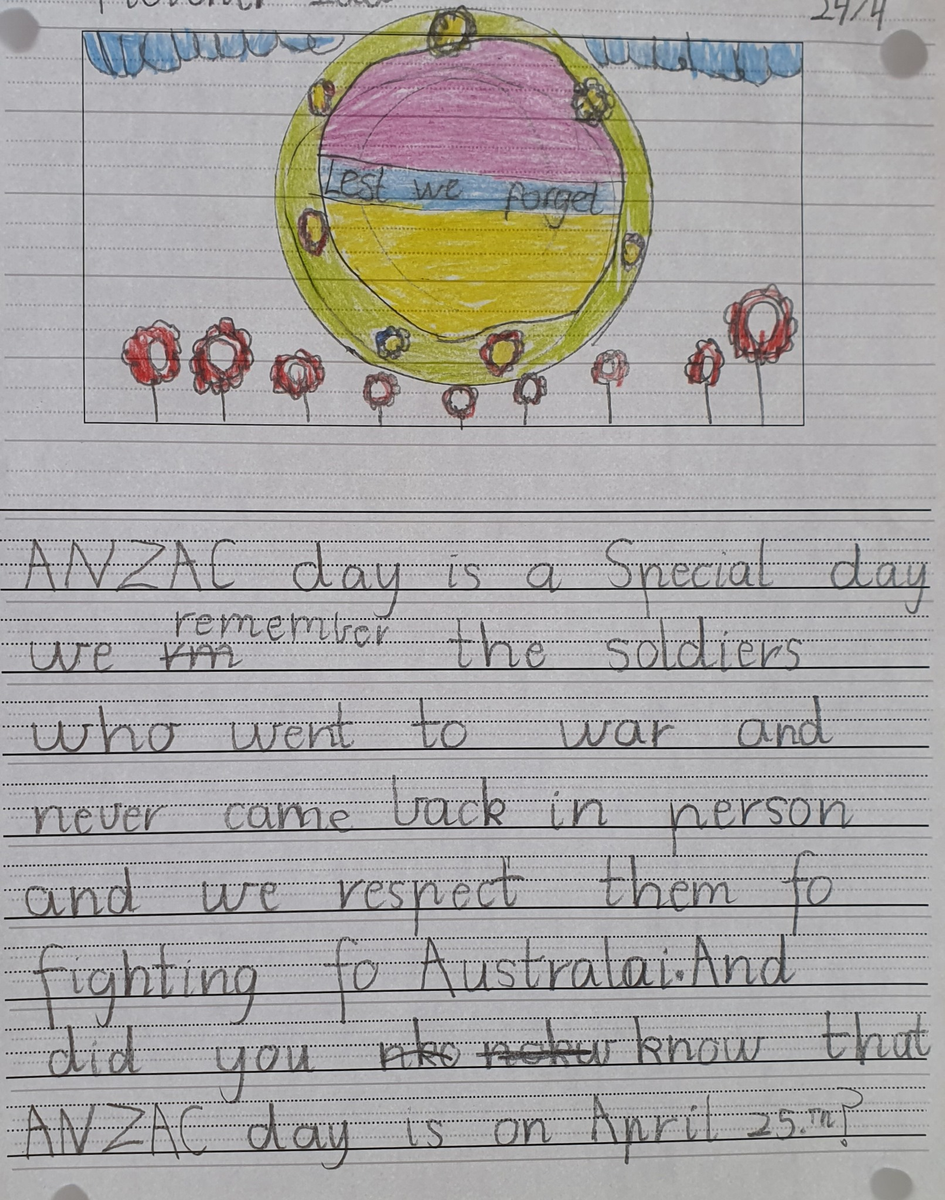 24/4
Lest we forget
ANZAC day is a Special day
remember
we rm the soldiers
who went to war and
never came back in person
and we respect them fo
fighting fo Australai. And
did you nko nokw know that
ANZAC day is on April 25.th?